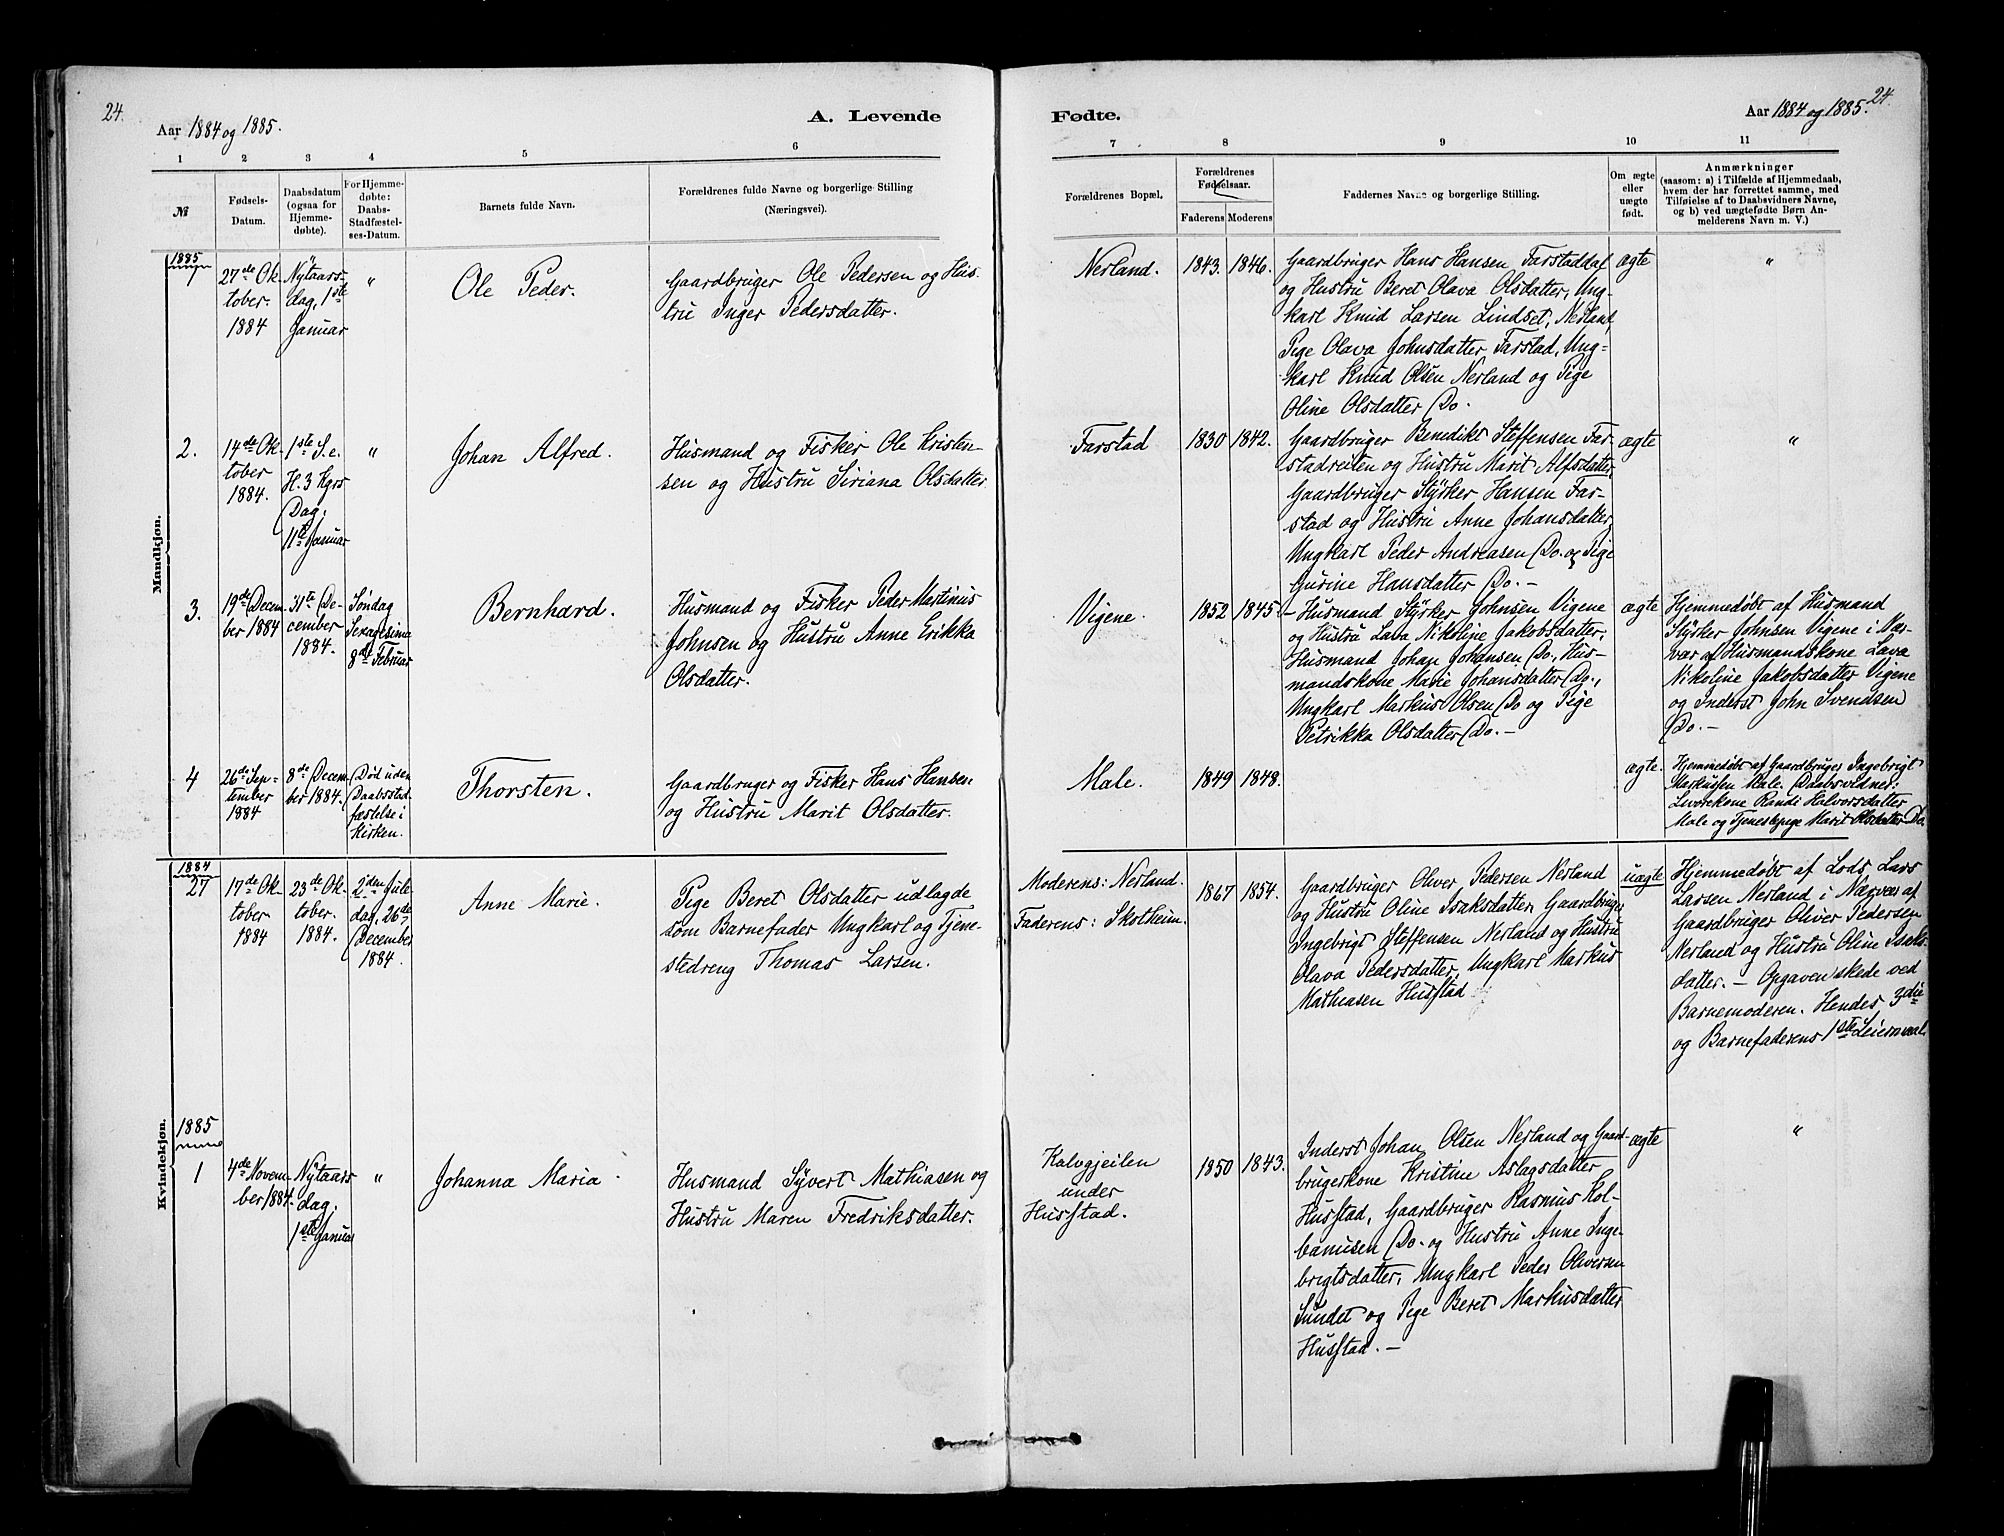 24.
Aar 1884 og 1885.
A. Levende
1 2 3 4 5 6
№
Fødsels-
Datum.
Daabsdatum
(ogsaa for
Hjemme-
døbte).
For Hjemme-
døbte:
Daabs-
Stadfæstel-
ses-Datum.
Barnets fulde Navn.
Forældrenes fulde Navne og borgerlige Stilling
(Næringsvei).
Mandkjøn.
1885
1
27de Ok-
tober.
1884
Nytaars-
dag, 1ste
Januar
"
Ole Peder.
Gaardbruger Ole Pedersen og Hus-
tru Inger Pedersdatter.
2.
14de Ok-
tober
1884.
1ste S. e.
H. 3 Kgrs
Dag,
11te Januar
"
Johan Alfred.
Husmand og Fisker Ole Kristen-
sen og Hustru Siriana Olsdatter
3.
19de Decem-
ber 1884
31te De-
cember
1884.
Søndag
Sexagesima
8de Februar
Bernhard.
Husmand og Fisker Peder Martinus
Johnsen og Hustru Anne Erikka
Olsdatter.
4
26de Sep-
tember
1884
8de Decem-
ber 1884.
Død uden
Daabsstad-
fæstelse i
Kirken.
Thorsten.
Gaardbruger og Fisker Hans Hansen
og Hustru Marit Olsdatter.
Kvindekjøn.
1884
27
17de Ok-
tober
1884
23de Ok-
tober.
1884.
2den Jule-
dag, 26de
December
1884.
Anne Marie.
Pige Beret Olsdatter udlagde
som Barnefader Ungkarl og Tjene-
stedreng Thomas Larsen.
1885
1
4de Novem-
ber 1884.
Nytaars
dag,
1ste Januar
"
Johanna Maria.
Husmand Syvert Mathiasen og
Hustru Maren Fredriksdatter.
Fødte.
Aar 1884 og 1885.
24.
7 8 9 10 11
Forældrenes Bopæl.
Forældrenes
Fødselsaar.
Faderens Moderens
Faddernes Navne og borgerlige Stilling.
Om ægte
eller
uægte
født.
Anmærkninger
(saasom: a) i Tilfælde af Hjemmedaab,
hvem der har forrettet samme, med
Tilføielse af to Daabsvidners Navne,
og b) ved uægtefødte Børn An-
melderens Navn m. V.)
Nerland.
1843. 1846.
Gaardbruger Hans Hansen Farstaddal
og Hustru Beret Olava Olsdatter, Ung-
karl Knud Larsen Lindset, Nerland,
Pige Olava Johnsdatter Farstad, Ung-
karl Knud Olsen Nerland og Pige
Oline Olsdatter Do.
ægte
"
Farstad
1830 1842.
Gaardbruger Benedikt Steffensen Far-
stadreiten og Hustru Marit Alfsdatter,
Gaardbruger Styrker Hansen Far-
stad og Hustru Anne Johansdatter,
Ungkarl Peder Andreasen Do. og Pige
Gurine Hansdatter Do. –
ægte
"
Vigene.
1852 1845.
– Husmand Styrker Johnsen Vigene
og Hustru Lava Nikoline Jakobsdatter,
Husmand Johan Johansen Do., Hus-
mandskone Marie Johansdatter Do.,
Ungkarl Markus Olsen Do og Pige
Petrikka Olsdatter Do. –
ægte
Hjemmedøbt af Husmand
Styrker Johnsen Vigene i Nær-
vær af Husmandskone Lava
Nikoline Jakobsdatter Vigene
og Inderst John Svendsen
Do. –
Male.
1849 1848.
ægte.
Hjemmedøbt af Gaardbruger Ingebrigt
Markussen Male. Daabsvidner:
Livørekone Randi Halvorsdatter
Male og Tjenestepige Marit Olsdatter Do.
Moderens: Nerland.
Faderens: Skotheim.
1867 1854.
Gaardbruger Oliver Pedersen Nerland
og Hustru Oline Isaksdatter, Gaardbruger
Ingebrigt Steffensen Nerland og Hustru
Olava Pedersdatter, Ungkarl Markus
Mathiasen Husstad
uægte
Hjemmedøbt af Lods Lars
Larsen Nerland i Nærvær af
Gaardbruger Oliver Pedersen
Nerland og Hustru Oline Isaks-
datter. – Opgaven skede ved
Barnemoderen. Hendes 3die
og Barnefaderens 1ste Leiermaal.
Kalvgjeilen
under
Husstad.
1850 1843.
Inderst Johan Olsen Nerland og Gaard-
brugerkone Kristine Aslagsdatter
Husstad, Gaardbruger Rasmus Kol-
banusen Do. og Hustru Anne Inge-
brigtsdatter, Ungkarl Peder Oliversen
Sundet og Pige Beret Markusdatter
Husstad. –
ægte
"